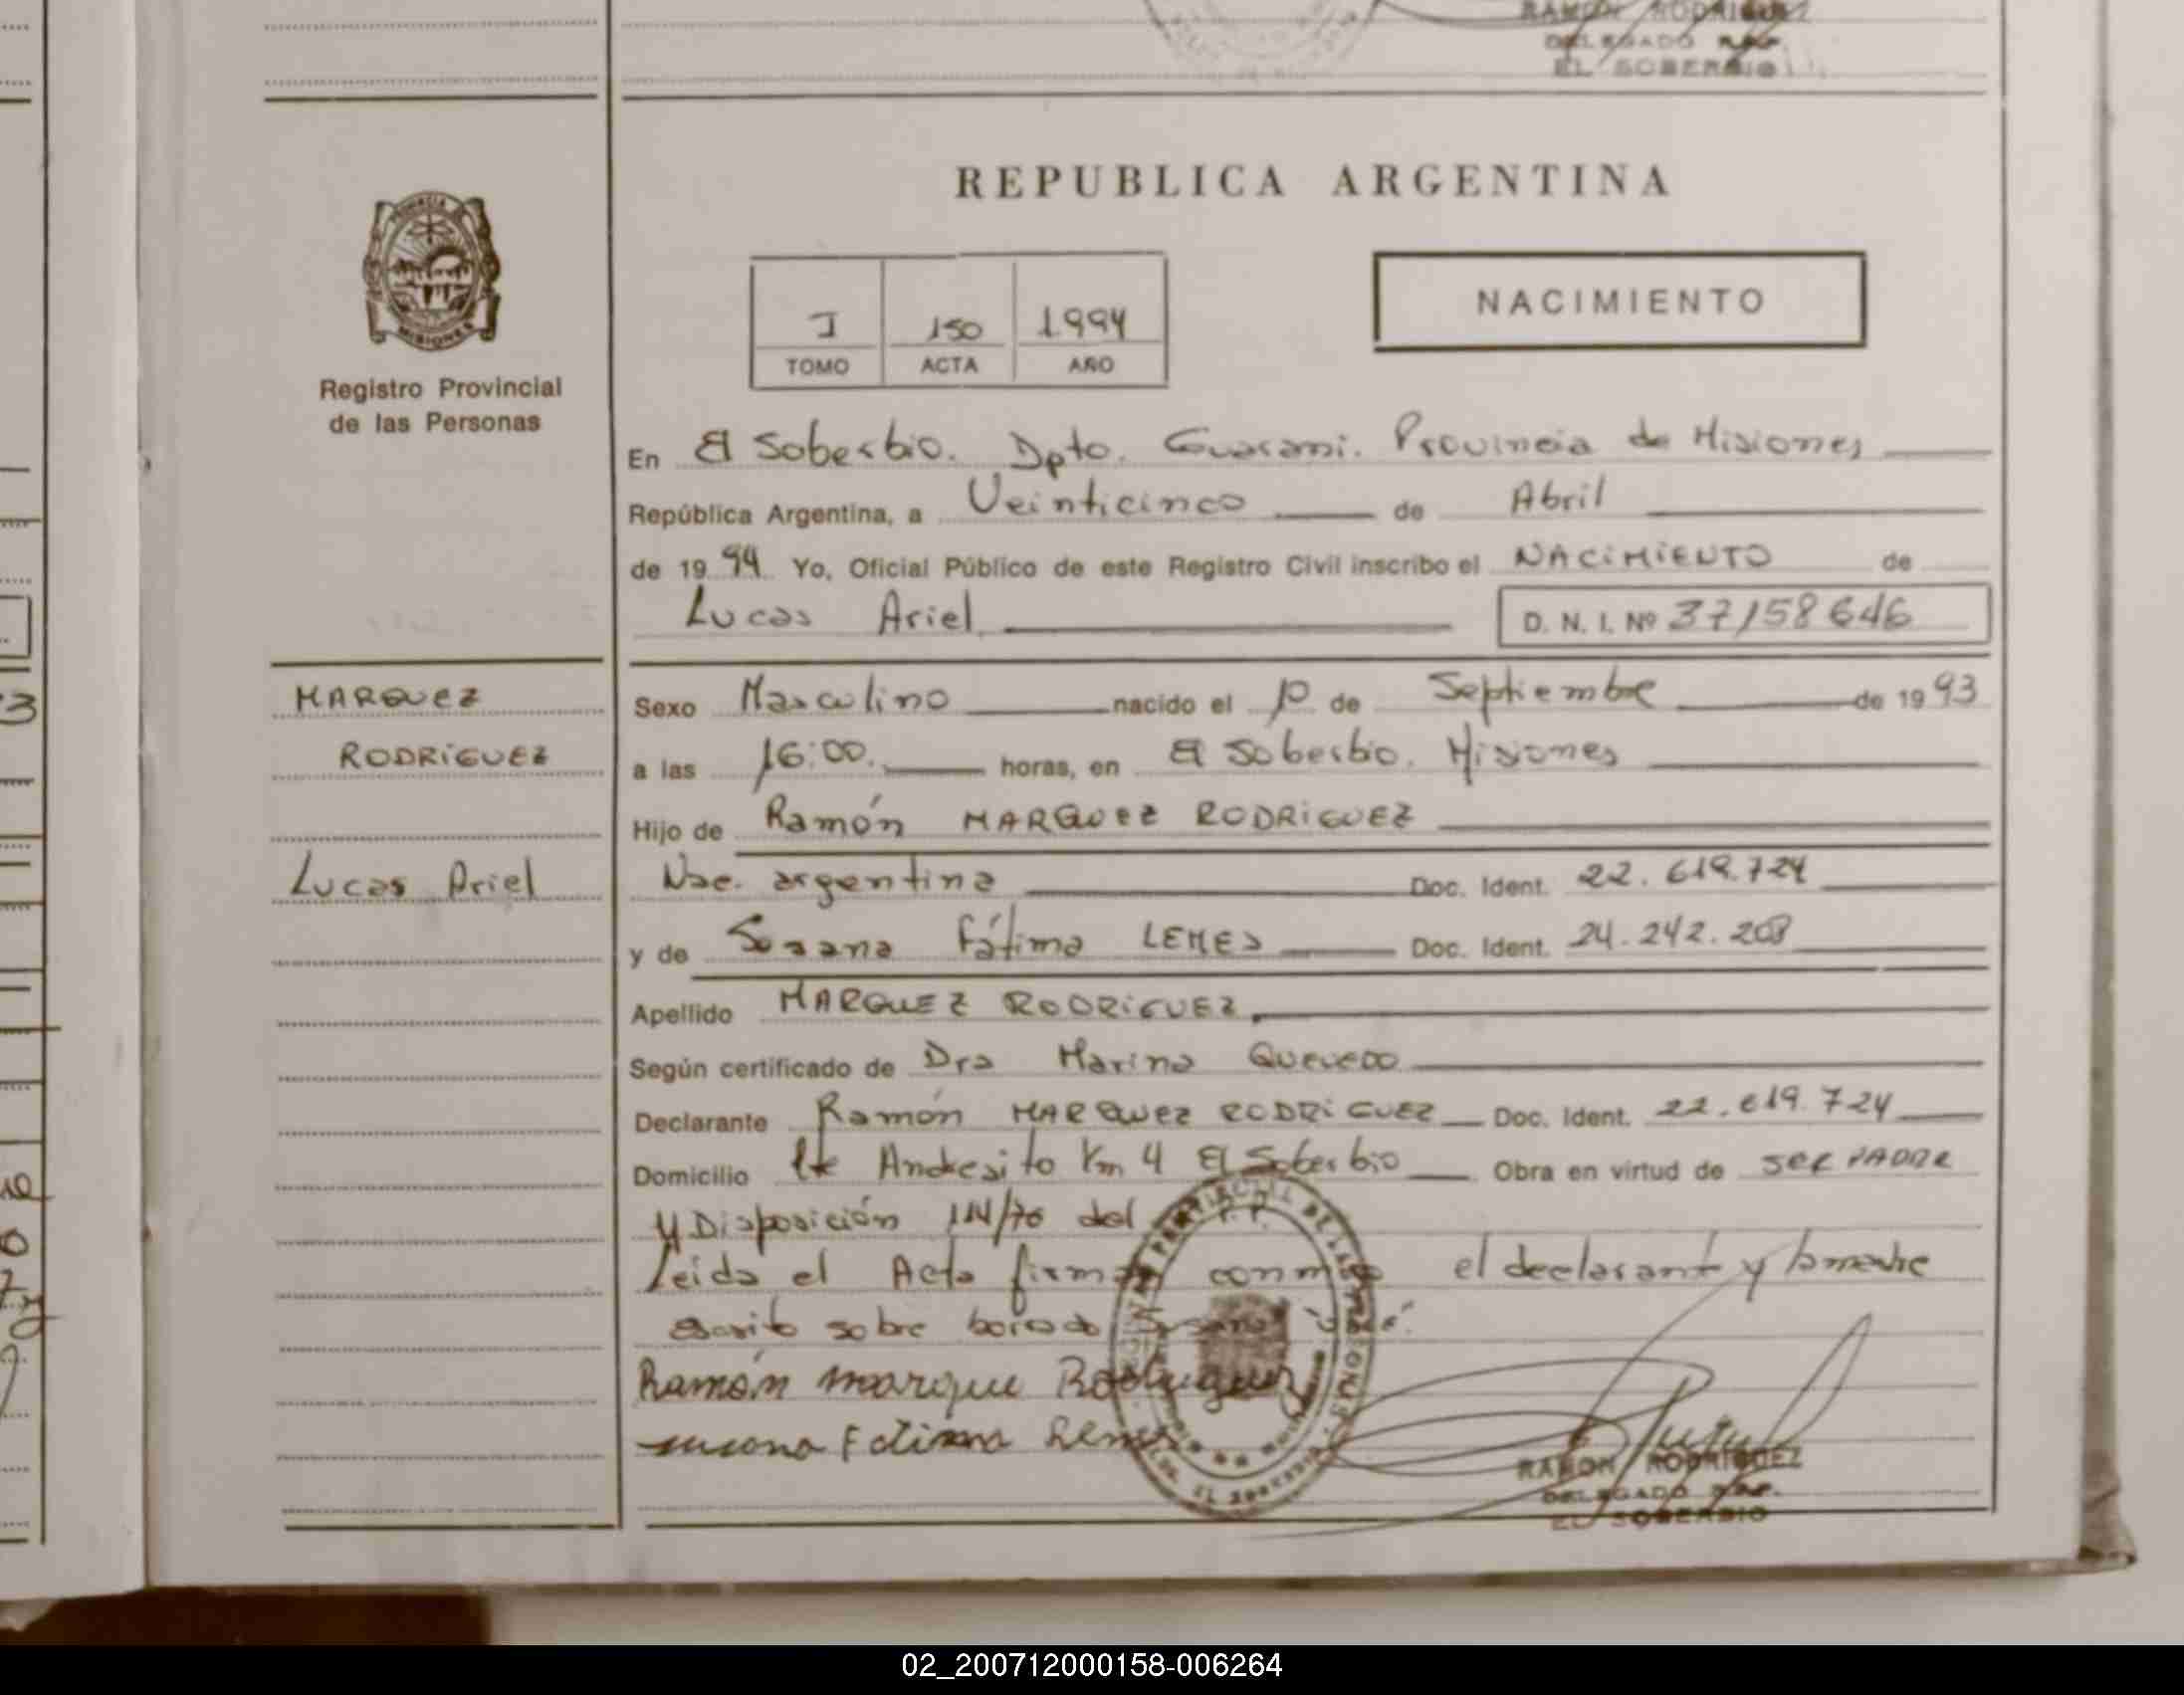 RAMON RODRIGUEZ
DELEGADO R.P.P.
EL SOBERBIO
REPUBLICA ARGENTINA
PROVINCIA DE
MISIONES
Registro Provincial
de las Personas
I 150 1994
TOMO ACTA AÑO
NACIMIENTO
En El Soberbio. Dpto. Guarani. Provincia de Misiones
República Argentina, a Veinticinco de Abril
de 19 94 Yo, Oficial Público de este Registro Civil inscribo el NACIMIENTO de
Lucas Ariel D. N. I. Nº 37158646
MARQUEZ
RODRIGUEZ
Lucas Ariel
Sexo Masculino nacido el 10 de Septiembre de 19 93
a las 16:00. horas, en El Soberbio. Misiones
Hijo de Ramón MARQUEZ RODRIGUEZ
Nac. argentina Doc. Ident. 22.619.724
y de Susana Fátima LEMES Doc. Ident. 24.242.208
Apellido MARQUEZ RODRIGUEZ.
Según certificado de Dra Marina QUEVEDO
Declarante Ramón MARQUEZ RODRIGUEZ Doc. Ident. 22.619.724
Domicilio Andresito Km 4 El Soberbio Obra en virtud de ser PADRE
y Disposición 114/76 del
Leida el Acta firman conmigo el declarante y la madre
escrito sobre borrado Susana
Ramón marque Rodriguez
susana Fatima Lemes
RAMON RODRIGUEZ
DELEGADO R.P.P.
EL SOBERBIO
02_200712000158-006264